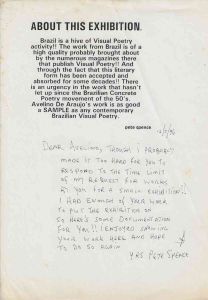 ABOUT THIS EXHIBITION.
Brazil is a hive of Visual Poetry
activity!! The work from Brazil is of a
high quality probably brought about
by the numerous magazines there
that publish Visual Poetry!! And
through the fact that this literary
form has been accepted and
absorbed for some decades!! There
is an urgency in the work that hasn't
let up since the Brazilian Concrete
Poetry movement of the 50's.
Avelino De Araujo's work is as good
a SAMPLE as any contemporary
Brazilian Visual Poetry.
pete spence
DEAR AVELINO, THOUGH I PROBABLY
MADE IT TOO HARD FOR YOU TO
RESPOND TO THE TIME LIMIT
OF MY REQUEST FOR WORKS
BY YOU FOR A SMALL EXHIBITION!!
I HAD ENOUGH OF YOUR WORK
TO PUT THE EXHIBITION ON
SO HERE'S SOME DOCUMENTATION
FOR YOU!! I ENJOYED SHOWING
YOUR WORK HERE AND HOPE
TO DO SO AGAIN
YRS PETE SPENCE